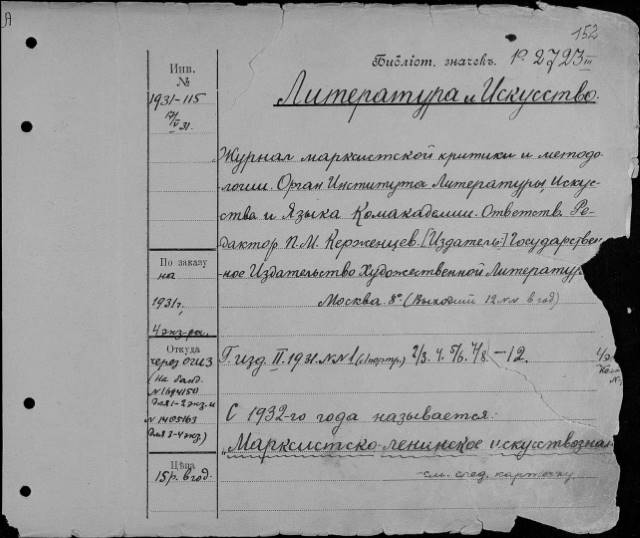 А
152
Библіот. значекъ. 1º 2723 III
Литература и Искусство.
Инв.
№
1931-115
Журнал марксистской критики и методо-
логии. Орган Института Литературы, Искус-
ства и Языка Комакадемии. Ответств. Ре-
дактор. П. М. Керженцев. [Издатель:] Государствен-
ное Издательство Художественной Литератур
Москва. 8º (Выходит 12 №№ в год)
По заказу
на
1931 г.
4 экз-ра.
Откуда
через ОГИЗ
(На банд.
№ 1694150
для 1-2 экз. и
№ 1405163
для 3-4 экз.)
Г. изд. II. 1931. №№ 1 2/3. 4. 5/6. 7/8 - 12.
С 1932-го года называется:
"Марксистско-ленинское искусствознан
см. след. карточку
Цѣна
15 р. в год.